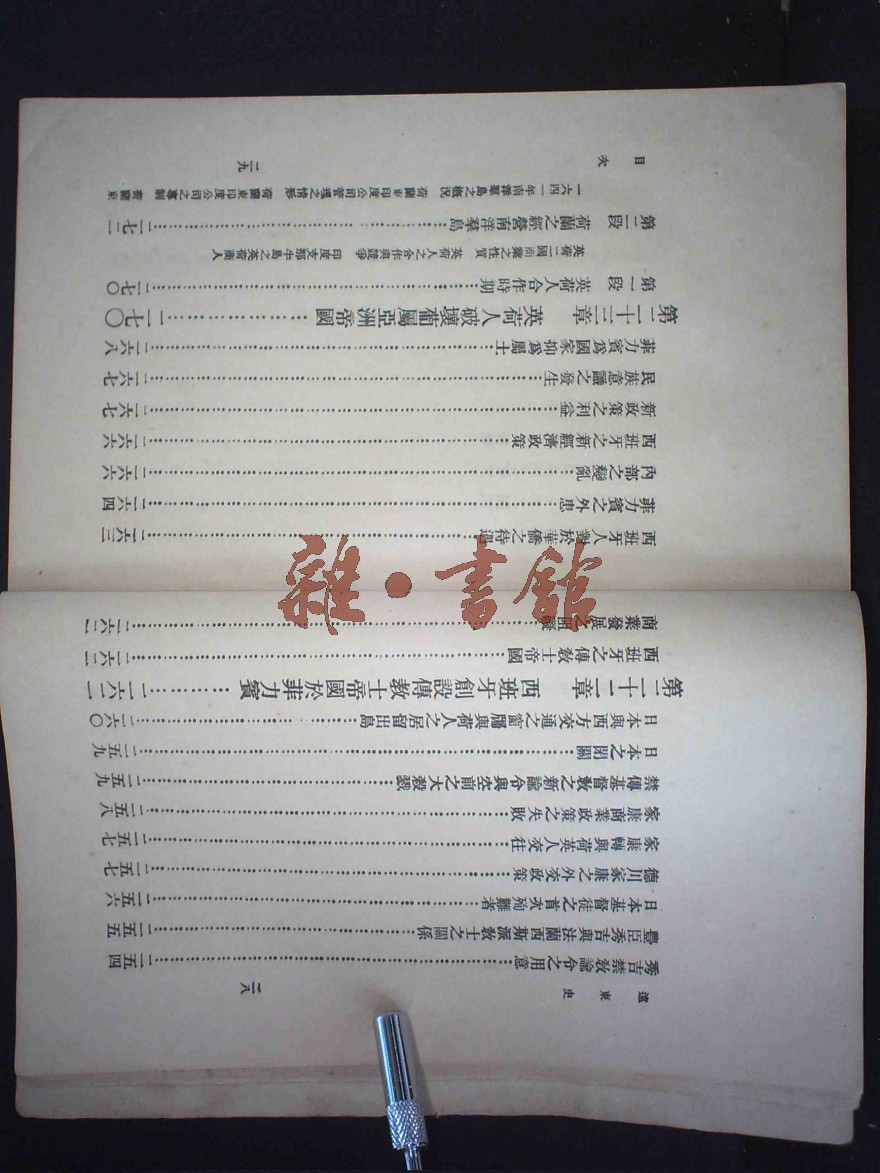 遠東史
二八
秀吉禁教諭令之用意……一五四
豐臣秀吉與法蘭西斯派教士之關係……一五五
日本基督徒之首次殉難者……一五六
德川家康之外交政策……一五七
家康轉與荷英人交往……一五七
家康商業政策之失敗……一五八
禁傳基督教之新諭令與空前之大殺戮……一五九
日本之閉關……一五九
日本與西方交通之窗牖與荷人之居留出島……一六〇
第二十二章 西班牙創設傳教士帝國於菲力賓……一六一
西班牙之傳教士帝國……一六一
商業發展之阻礙……一六二
西班牙人對於華僑之待遇……一六三
菲力賓之外患……一六四
內部之變亂……一六六
西班牙之新經濟政策……一六六
新政策之利益……一六七
民族意識之發生……一六七
菲力賓爲國家抑爲屬土……一六八
第二十三章 英荷人破壞葡屬亞洲帝國……一七〇
第一段 英荷人合作時期……一七〇
英荷二國商業之性質 英荷人之合作與競爭 印度支那半島之英荷商人
第二段 荷蘭之經營南洋羣島……一七二
一六四一年南洋羣島之概況 荷蘭東印度公司管理之情形 荷蘭東印度公司之專制 荷蘭東
目次
二九
雜·書館